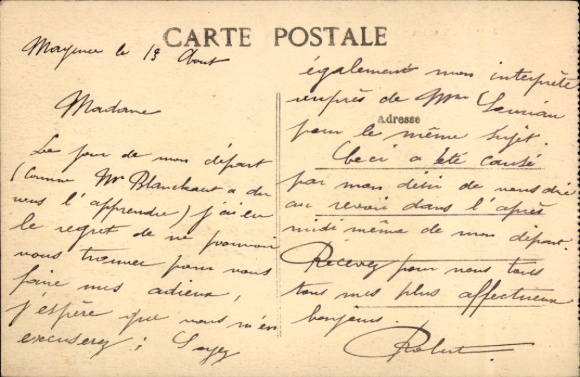 CARTE POSTALE
Mayence le 13 Août
Madame
Le jour de mon départ
(comme Mr Blanckaut a du
vous l'apprendre) j'ai eu
le regret de ne pouvoir
vous trouver pour vous
faire mes adieux,
j'espère que vous m'en
excuserez ; Soyez
également mon interprète
auprès de Mme
Adresse
pour le même sujet.
Ceci a été causé
par mon désir de vous dire
au revoir dans l'après
midi même de mon départ.
Recevez pour vous tous
tous mes plus affectueux
bonjours.
Robert.